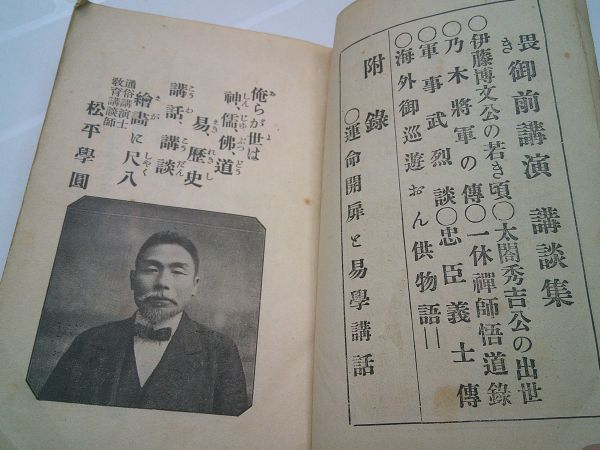 畏き御前講演 講談集
○伊藤博文公の若き頃○太閤秀吉公の出世
○乃木將軍の傳○一休禪師悟道錄
○軍事武烈談○忠臣義士傳
○海外御巡遊おん供物語＝
附錄
○運命開扉と易學講話
俺らが世は
神、儒、佛道
易、歷史
講話、講談
繪畫に尺八
通俗講演士
敎育講談師
松平學圓